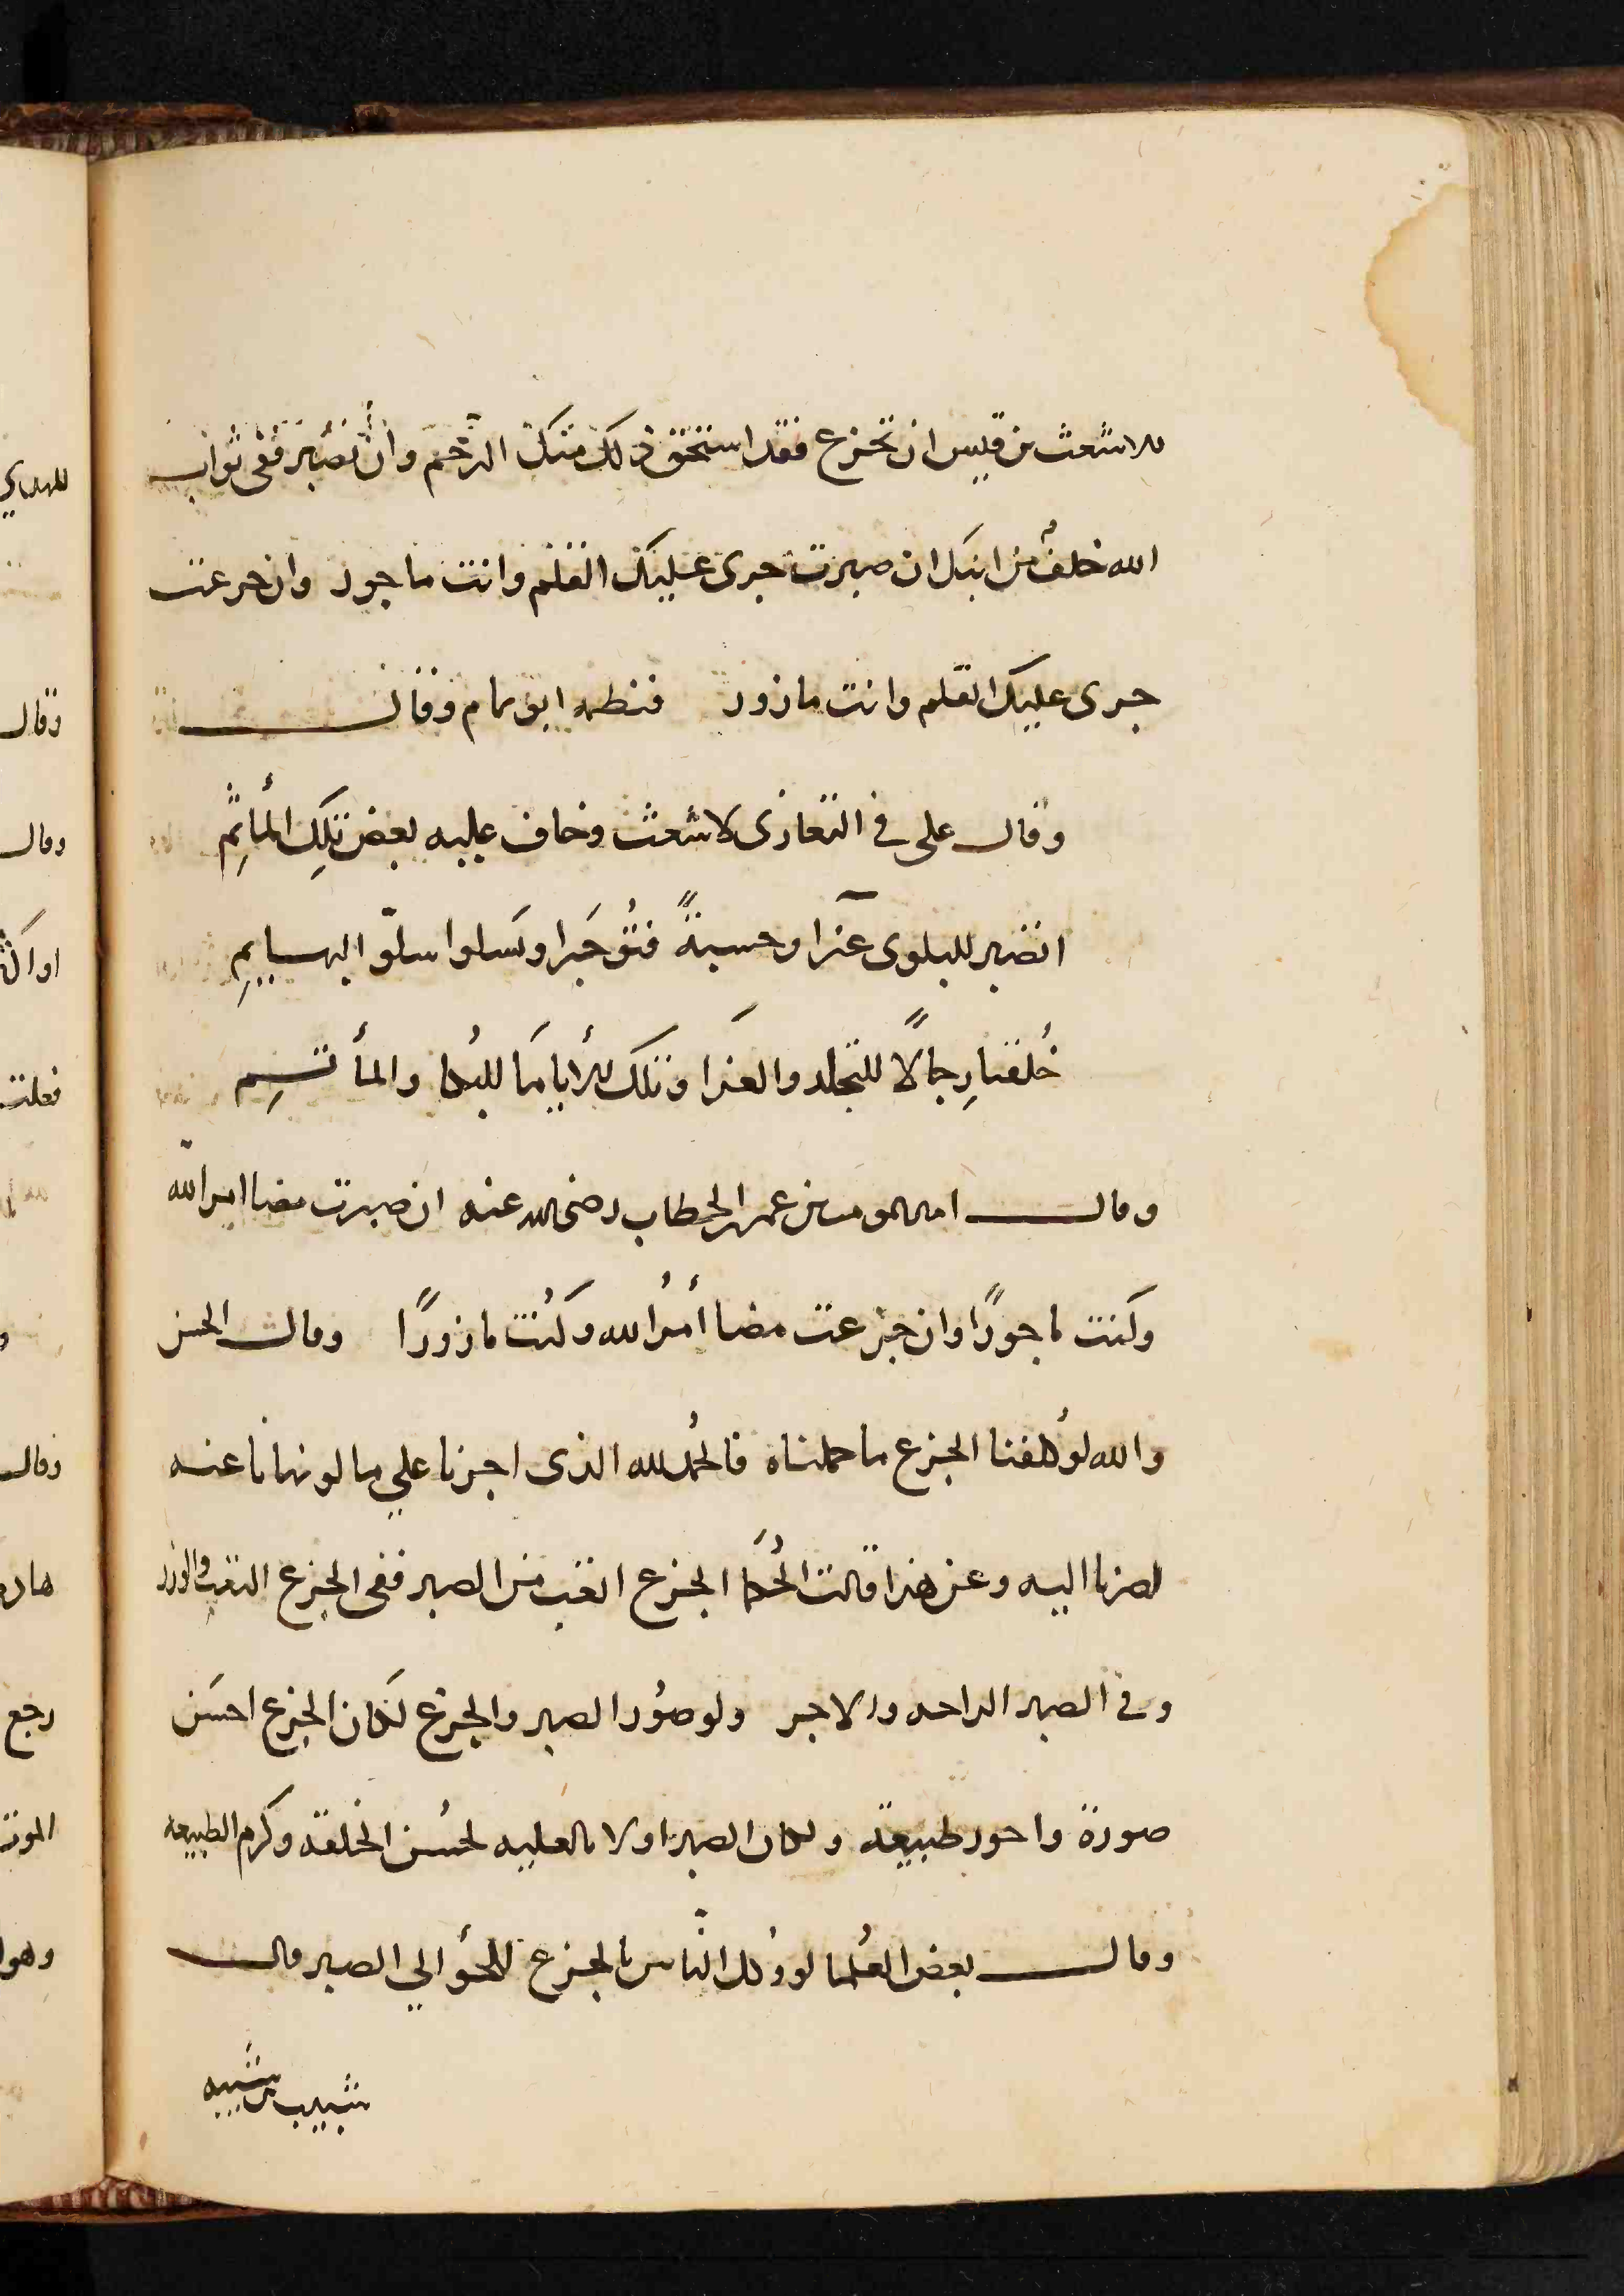 للاشعث بن قيس ان تجزع فقد استحق ذلك منك الرحم وان تصبر ففي ثواب
الله خلف من ابنك ان صبرت جرى عليك القلم وانت ماجور وان جزعت
جرى عليك القلم وانت مازور فنظمه ابو تمام وقال
وقال علي في التعازى لاشعث وخاف عليه بعض تلك المأثم
اتصبر للبلوى عزا وحسبةً فتؤجرا وتسلوا سلوّ البهايم
خُلقنا رِجالًا للتجلد والعزا وتلك الأيامَا للبُكا والمأتم
وقال امير المومنين عمر بن الخطاب رضي الله عنه ان صبرت مضا امر الله
وكنت ماجورًا وان جزعت مضا أمرُ الله وكُنت مازورًا وقال الحسن
والله لو كلفنا الجزع ما حملناه فالحمد لله الذى اجرنا على ما لو نهانا عنه
لصرنا اليه وعن هذا قالت الحُكما الجزع اتعب من الصبر ففي الجزع التعب والوزر
وفي الصبر الراحه والاجر ولو صُور الصبر والجزع لكان الجزع احسَن
صورة واحور طبيعة ولكان الصبر اولا بالغلبه لحسُن الخلقه وكرم الطبيعه
وقال بعض العُلما لو وُكل النّاس بالجزع للجؤ الي الصبر قال
شبيب بن شَيبه
للهداي
وقال
وقال
فعلت
وقال
رجع
الموت